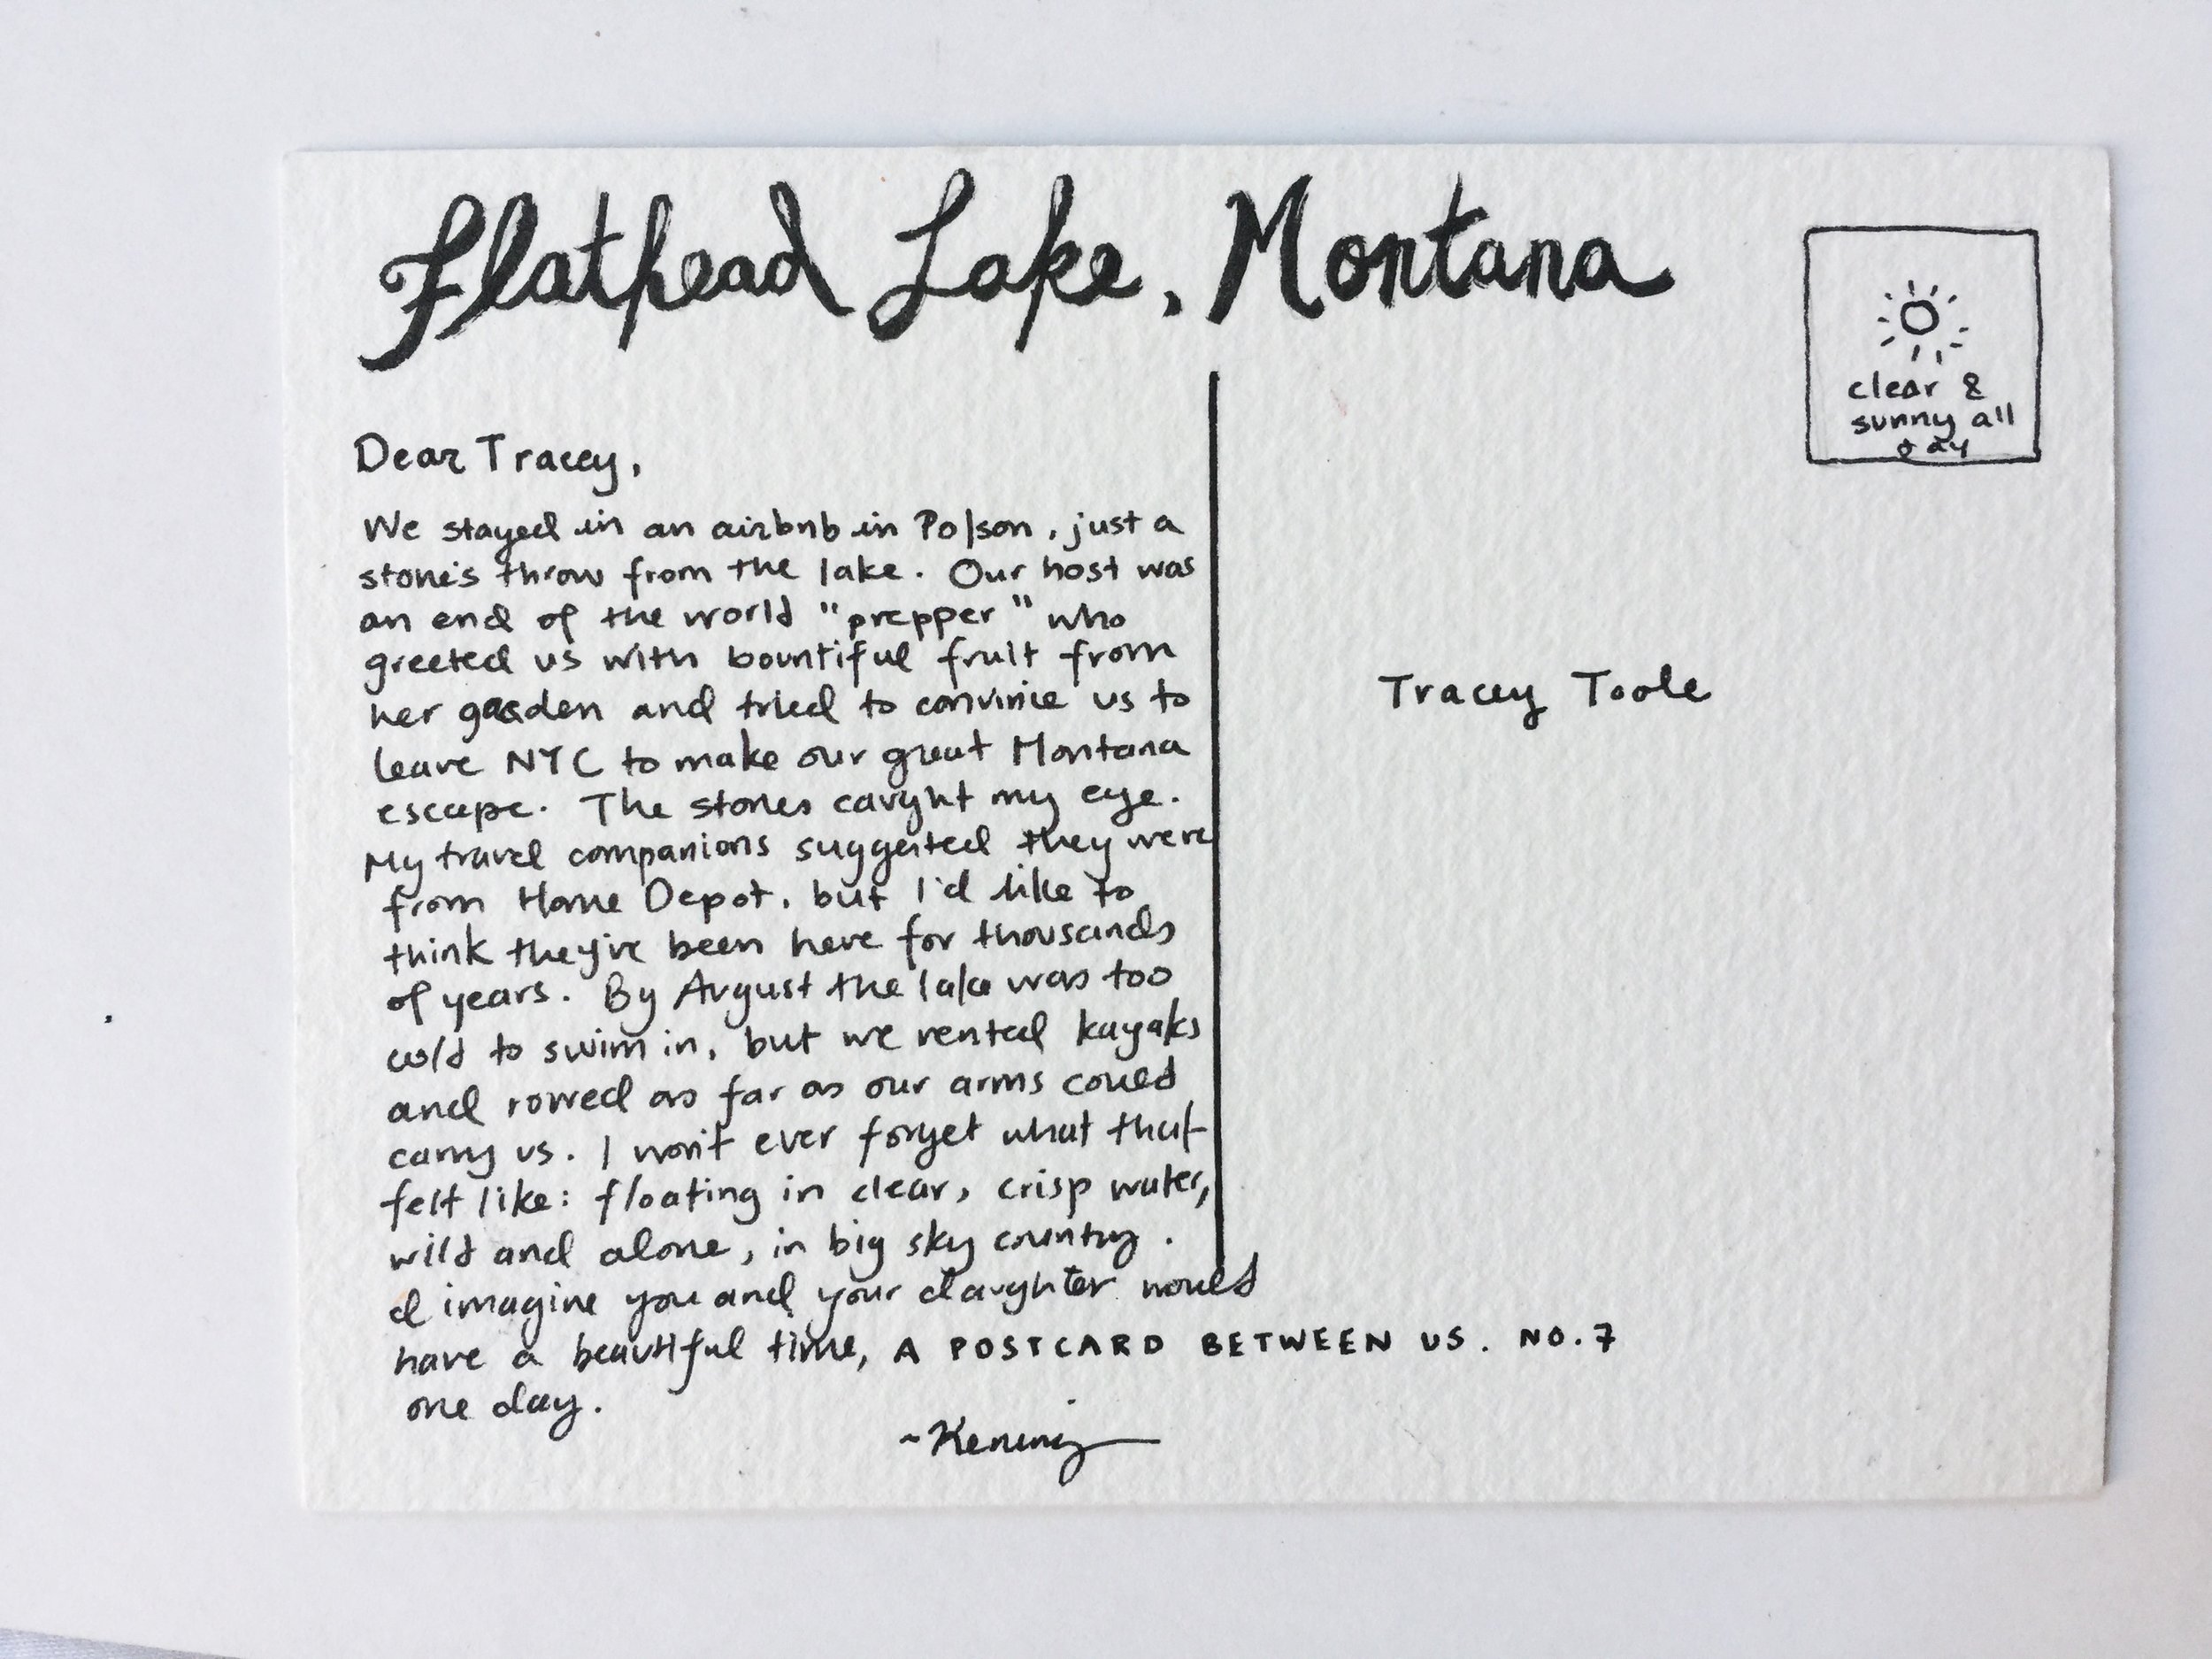 Flathead Lake, Montana
clear &
sunny all
day
Dear Tracey,
We stayed in an airbnb in Polson, just a
stone's throw from the lake. Our host was
an end of the world "prepper" who
greeted us with bountiful fruit from
her garden and tried to convince us to
leave NYC to make our great Montana
escape. The stones caught my eye.
My travel companions suggested they were
from Home Depot, but I'd like to
think they've been here for thousands
of years. By August the lake was too
cold to swim in, but we rented kayaks
and rowed as far as our arms could
carry us. I won't ever forget what that
felt like: floating in clear, crisp water,
wild and alone, in big sky country.
I imagine you and your daughter would
have a beautiful time,
one day.
Tracey Toole
A POSTCARD BETWEEN US. NO.7